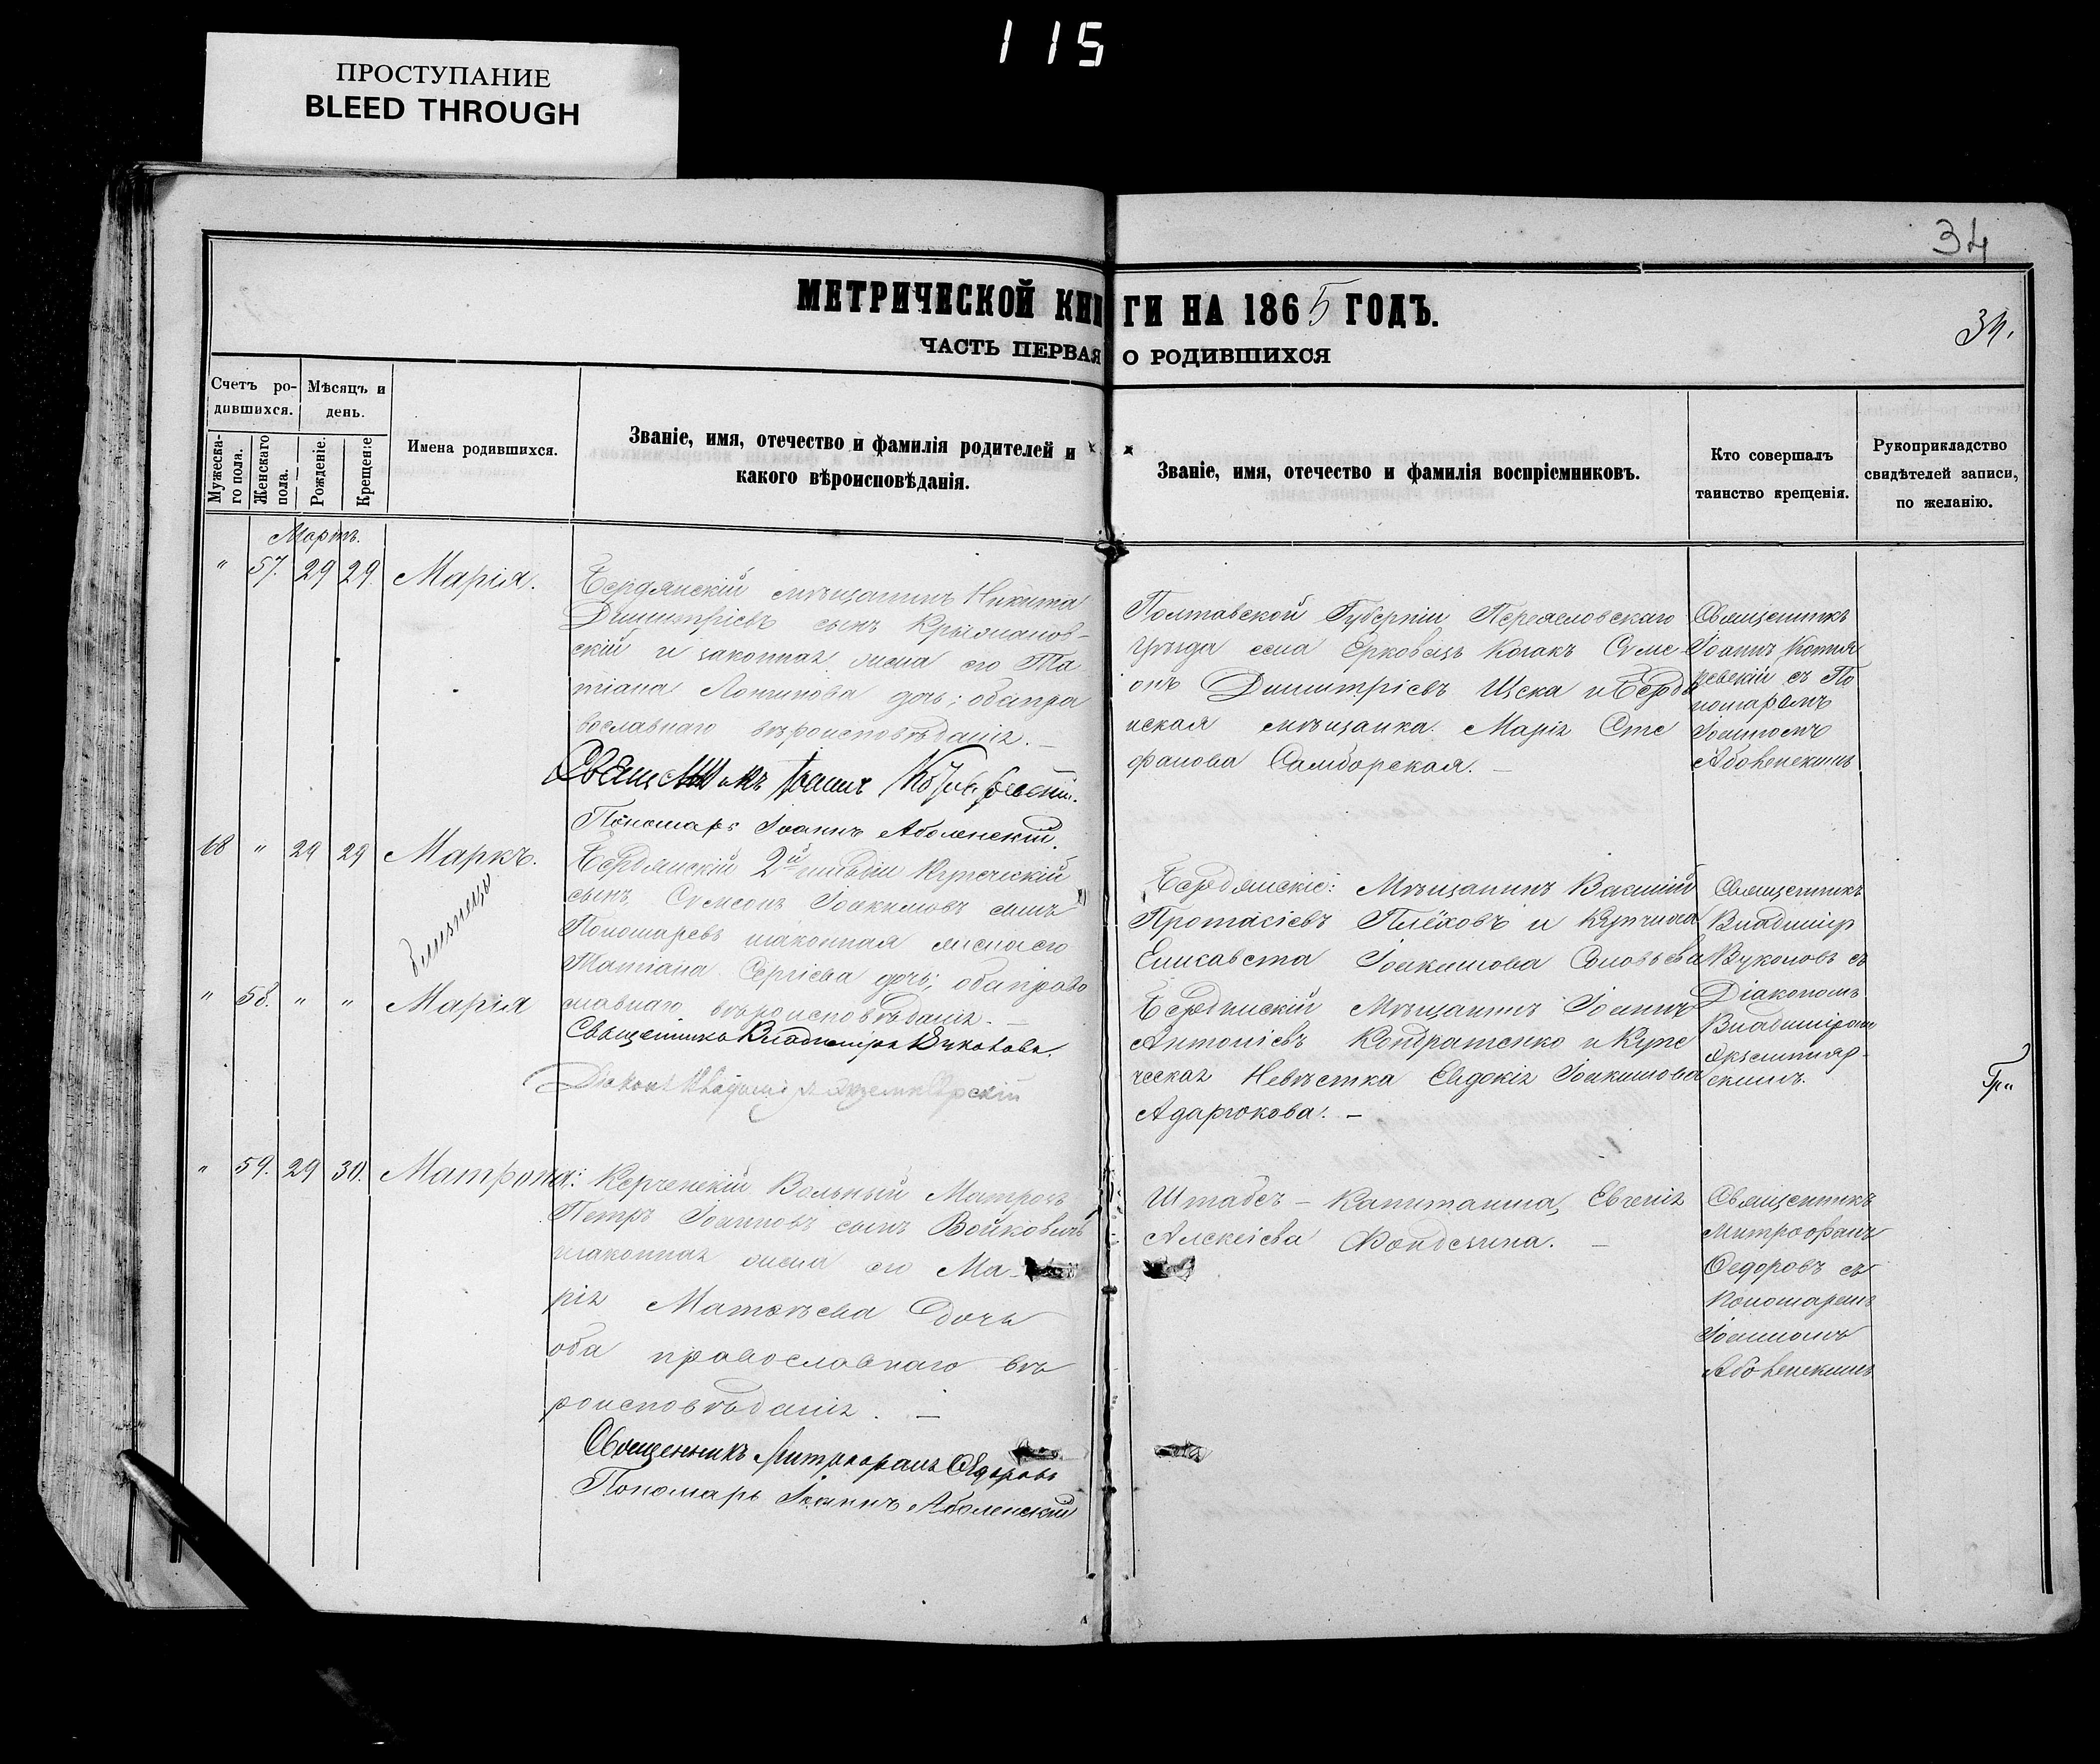 115
ПРОСТУПАНИЕ
BLEED THROUGH
34
МЕТРИЧЕСКОЙ КНИГИ НА 1865 ГОДЪ.
34.
ЧАСТЬ ПЕРВАЯ О РОДИВШИХСЯ
Счетъ ро-
дившихся.
Мѣсяцъ и
день.
Мужеска-
го пола.
Женскаго
пола.
Рожденіе.
Крещеніе
Имена родившихся.
Званіе, имя, отечество и фамилія родителей и
какого вѣроисповѣданія.
Званіе, имя, отечество и фамилія воспріемниковъ.
Кто совершалъ
таинство крещенія.
Рукоприкладство
свидѣтелей записи,
по желанію.
Мартъ.
" 57. 29 29. Марія.
Бердянскій мѣщанинъ Никита
Димитріевъ сынъ Крыжанов-
скій и законная жена его Та
тіана Логинова дочь; оба пра
вославнаго вѣроисповѣданія. —
Священникъ Іоаннъ
Пономарь Іоаннъ Аболенскій.
Полтавской Губерніи Переясловскаго
уѣзда села Ерковецъ Козакъ Симе
онъ Димитріевъ и Бердя
нская мѣщанка Марія Сте
фанова Самборская. —
Священникъ
Іоаннъ
съ По
номаремъ
Іоанномъ
Аболенскимъ
68 " 29 29 Маркъ.
близнецы
" 58. " " Марія
Бердянскій 2й гильдіи Купеческій
сынъ Симеонъ Іоакимовъ сынъ
Пономаревъ и законная жена его
Татіана Сергіева дочь; оба право
славнаго вѣроисповѣданія. —
Священникъ Владиміръ Вуколовъ.
Діаконъ Владиміръ Экземплярскій
Бердянскіе: Мѣщанинъ Василій
Протасіевъ и Купчиха
Елисавета Іоакимова Соловьева
Бердянскій Мѣщанинъ Іоаннъ
Антоніевъ Кондратенко и Купе
ческая Невѣстка Евдокія Іоакимова
Адарюкова. —
Священникъ
Владиміръ
Вуколовъ съ
Діакономъ
Владиміромъ
Экземпляр-
скимъ.
" 59. 29 30. Матрона:
Керченскій Вольный Матросъ
Петръ Іоанновъ сынъ Войковичъ
и законная жена его Ма-
рія Матвѣева дочь
оба православнаго вѣ
роисповѣданія. —
Священникъ Митрофанъ Ѳедоровъ
Пономарь Іоаннъ Аболенскій
Штабсъ-Капитанша, Евгенія
Алексіева Фондезина. —
Священникъ
Митрофанъ
Ѳедоровъ съ
Пономаремъ
Іоанномъ
Аболенскимъ